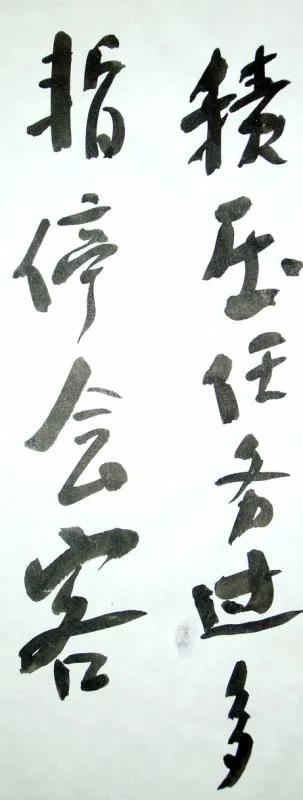 積压任务过多
暂停会客